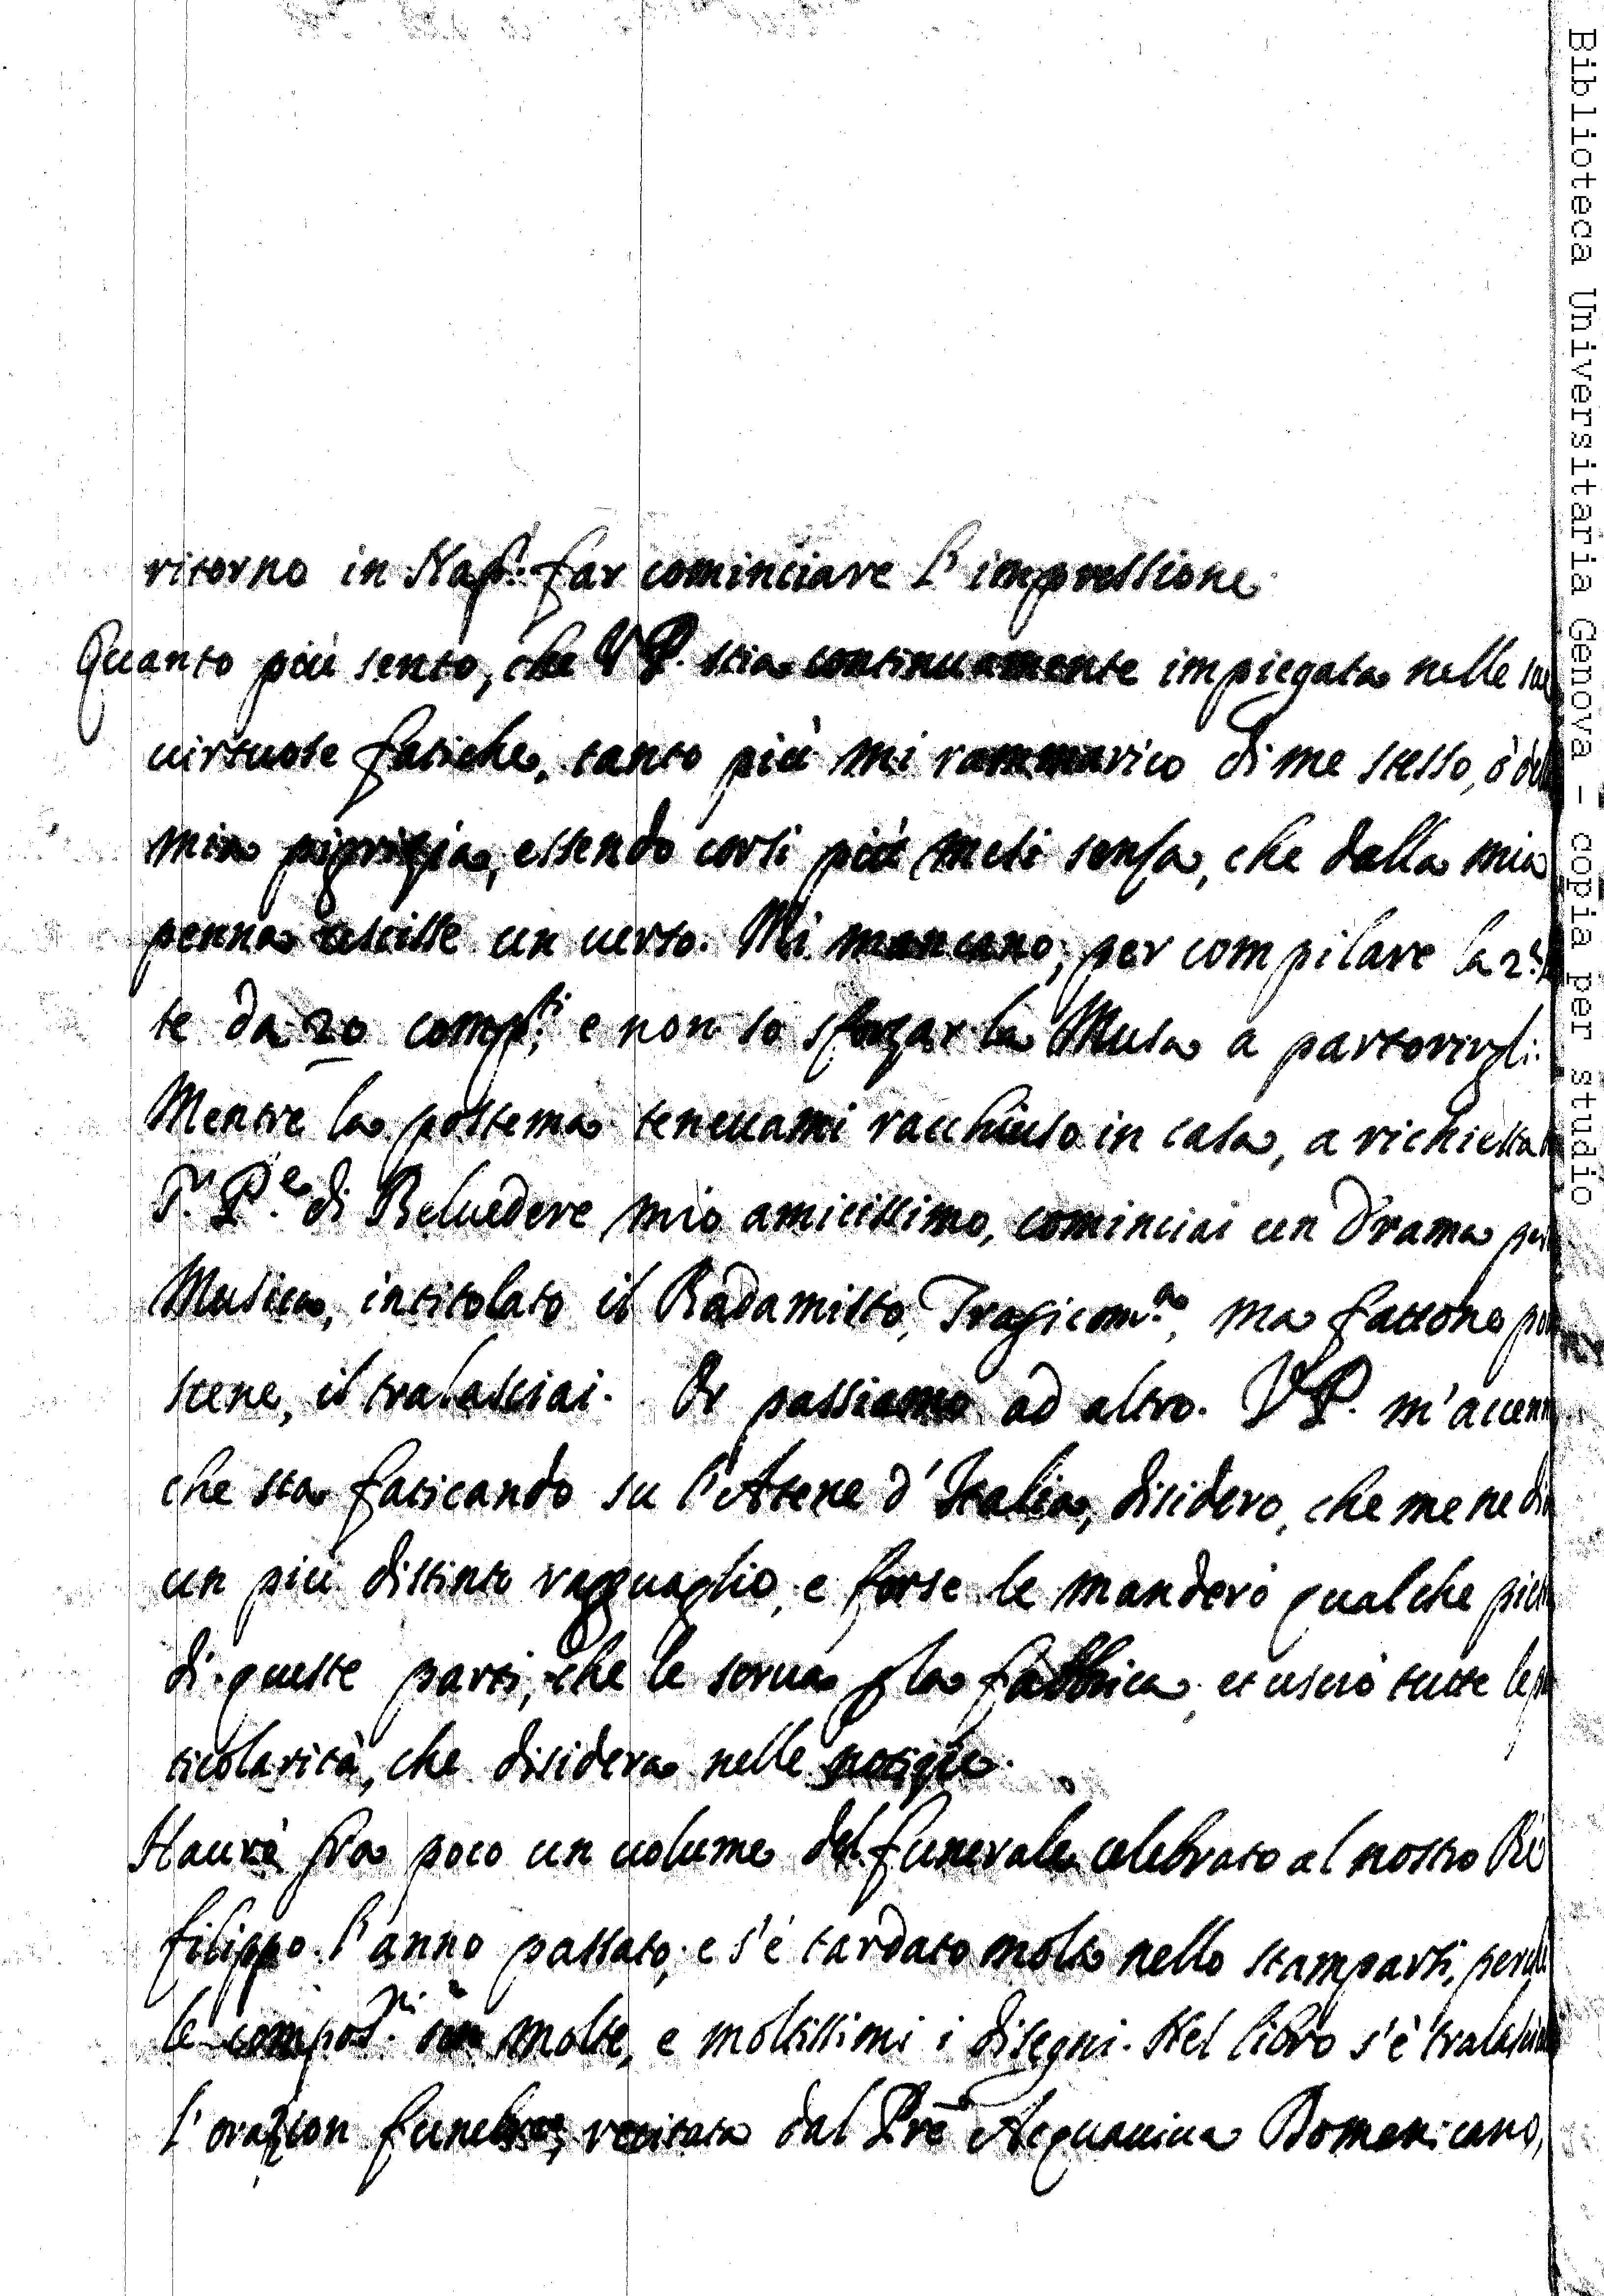 ritorno in Nap: far cominciare l'impressione.
Quanto più sento, che V P. stia continuamente impiegata nelle sue
uirtuose fatiche, tanto più mi rammarico di me stesso, ò
mia pigrizia, essendo corsi più mesi senza, che dalla mia
penna uscisse un uerso. Mi mancano, per compilare la 2ª
te da 20 comp.ti, e non so sforzar la Musa a partorirgli.
Mentre la postema teneuami racchiuso in casa, a richiesta
di Beluedere mio amicissimo, cominciai un Drama per
Musica, intitolato il Radamisto, Tragicom.a, ma fattone
scene, il tralasciai. Or passiamo ad altro. V P. m'accenn
che sta faticando su l'Atene d'Italia, disidero, che me ne dia
un più distinto ragguaglio, e forse le manderò qualche
di queste parti, che le serua p la fabbrica, et userò tutte le
ticolarità, che disidera nelle notizie.
Haurà fra poco un uolume del funerale celebrato al nostro Rè
filippo l'anno passato, e s'è tardato molto nello stamparsi,
le compos.ni son molte, e moltissimi i disegni. Nel libro s'è
l'orazion funebre, recitata dal Prē Acquauiua Domenicano,
Biblioteca Universitaria Genova - copia per studio